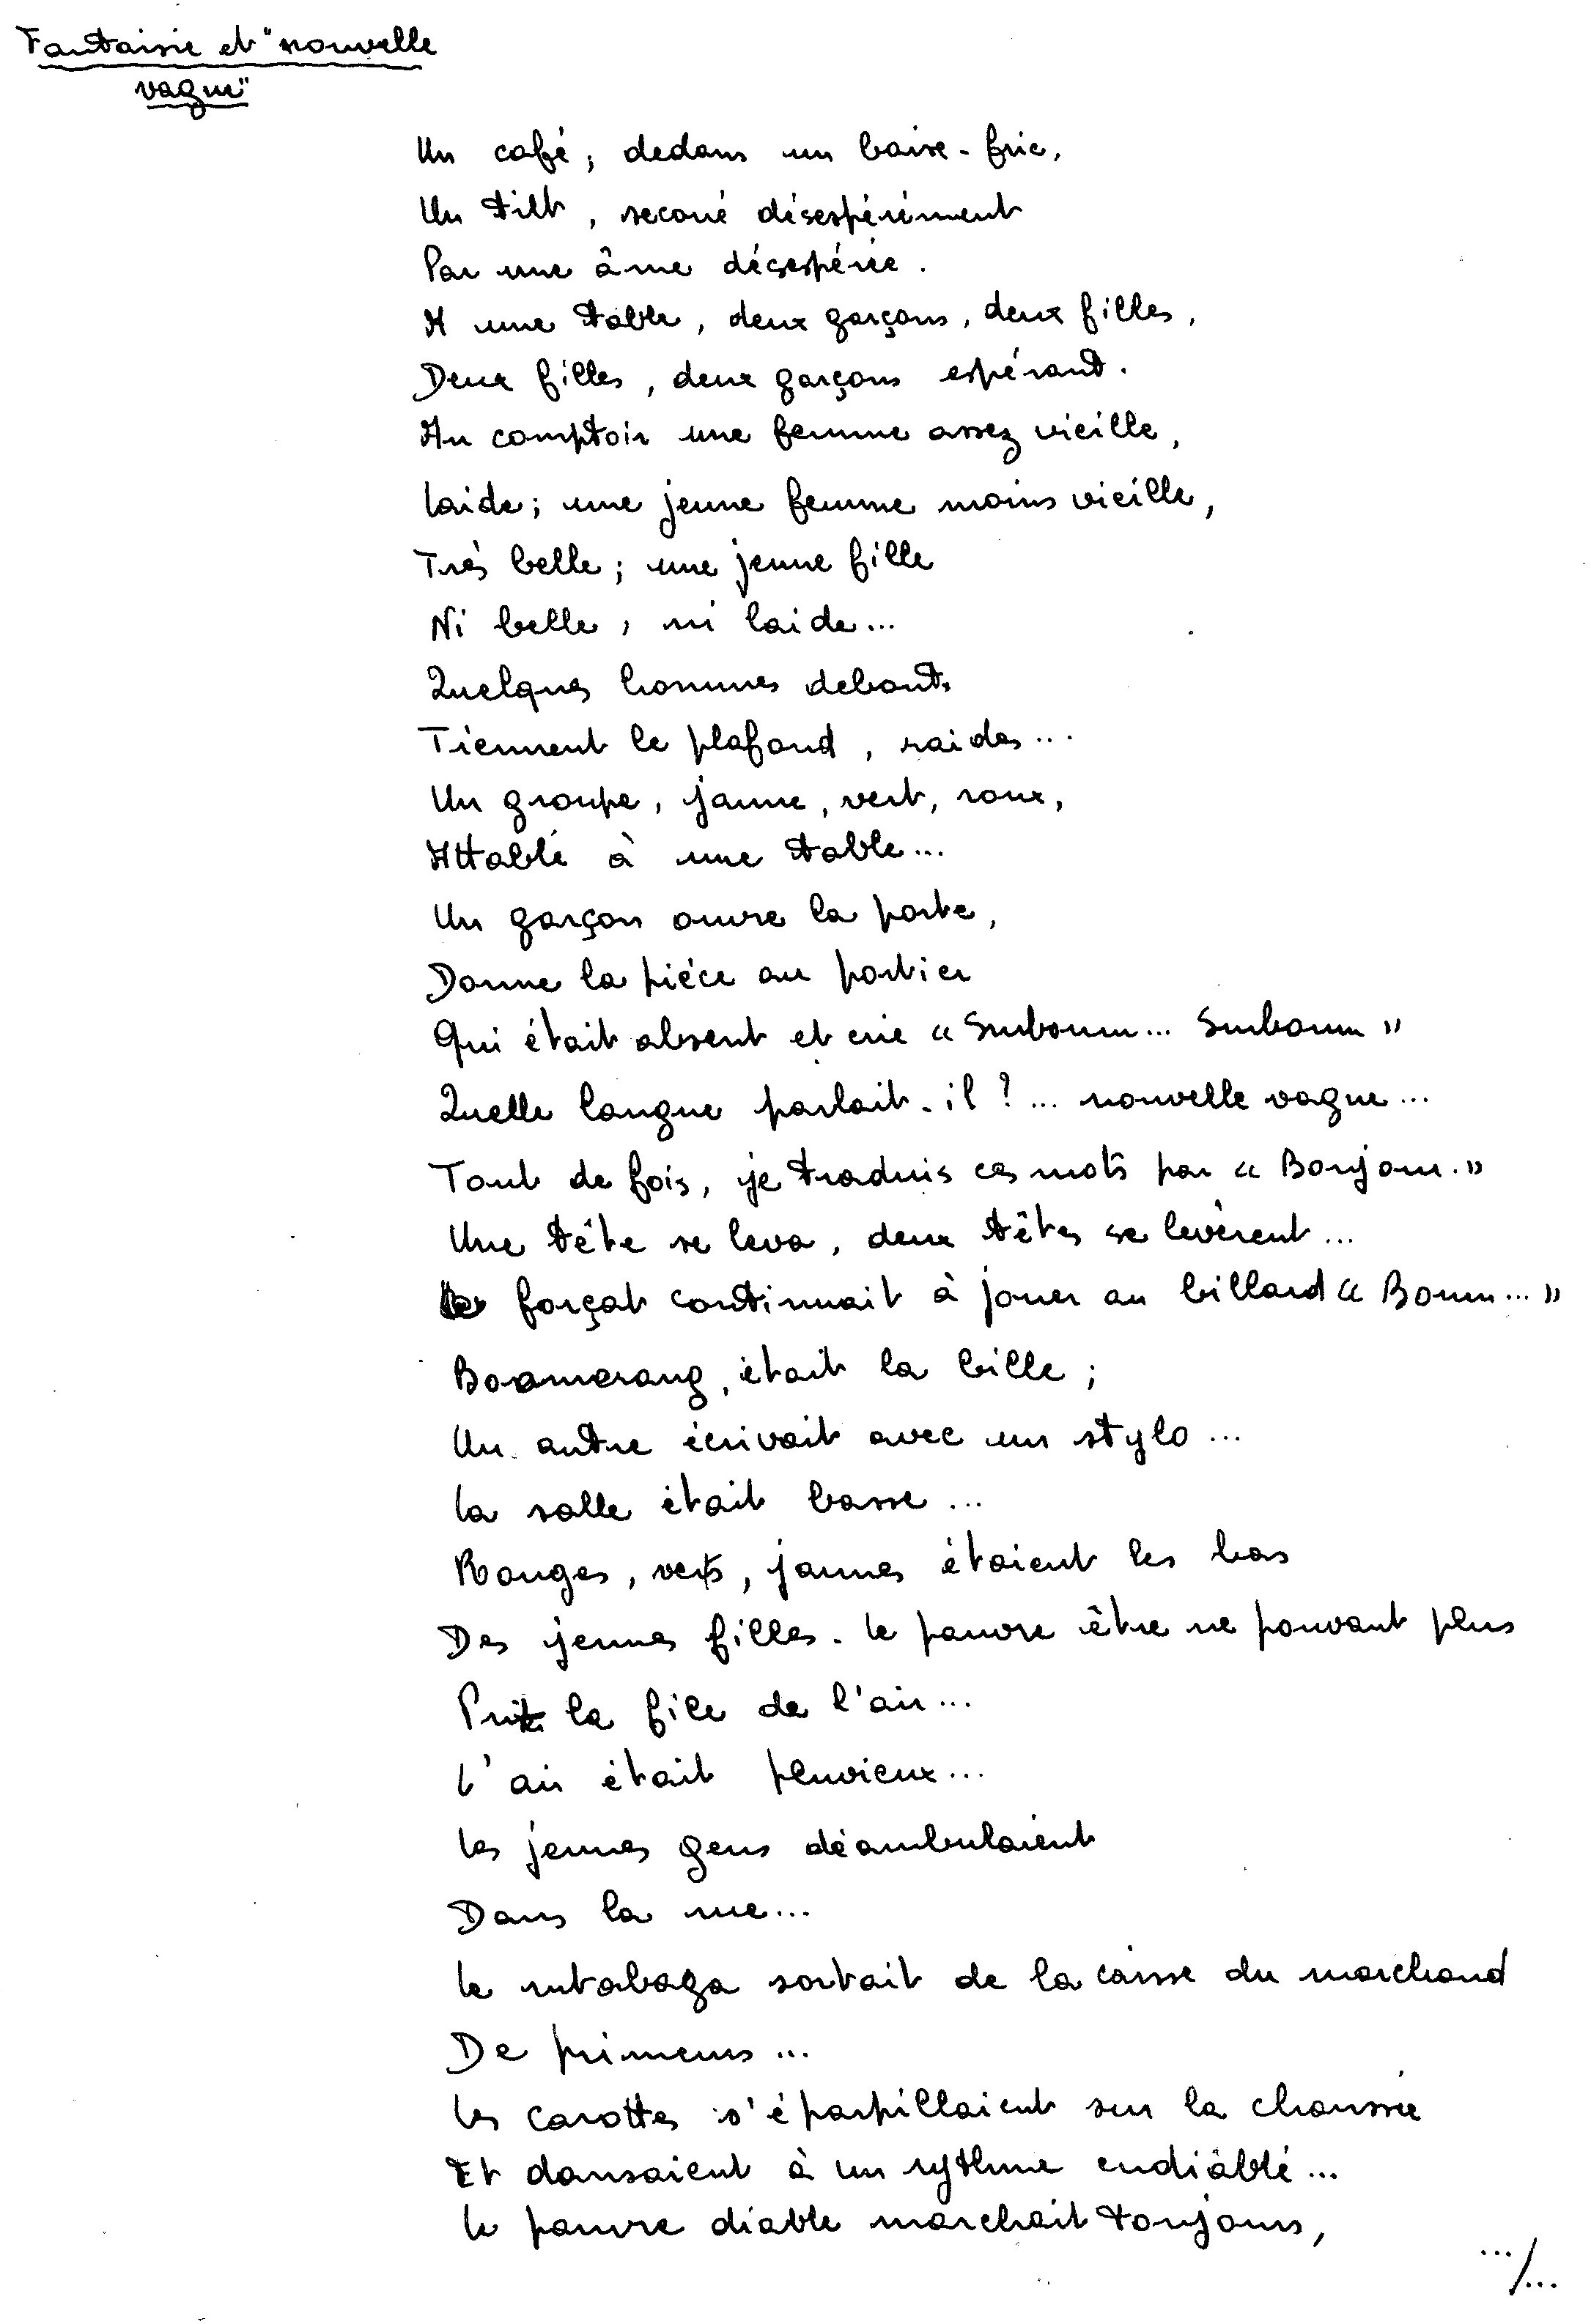 Fantaisie et "nouvelle
vague"
Un café ; dedans un baise-fric,
Un tilt, secoué désespérément
Par une âme désespérée.
A une table, deux garçons, deux filles,
Deux filles, deux garçons espérant.
Au comptoir une femme assez vieille,
laide ; une jeune femme moins vieille,
Très belle ; une jeune fille
Ni belle, ni laide...
Quelques hommes debouts
Tiennent le plafond, raides...
Un groupe, jaune, vert, roux,
Attablé à une table...
Un garçon ouvre la porte,
Donne la pièce au portier
Qui était absent et crie « Surboum... Surboum »
Quelle langue parlait-il ?... nouvelle vague...
Tout de fois, je traduis ces mots par « Bonjour. »
Une tête se leva, deux têtes se levèrent...
Le forçat continuait à jouer au billard « Boum... »
Boomerang, était la bille ;
Un autre écrivait avec un stylo...
La salle était basse...
Rouges, verts, jaunes étaient les bas
Des jeunes filles. Le pauvre être ne pouvant plus
Prit la file de l'air...
L'air était pluvieux...
Les jeunes gens déambulaient
Dans la rue...
Le rutabaga sortait de la caisse du marchand
De primeurs...
Les carottes s'éparpillaient sur la chaussée
Et dansaient à un rythme endiâblé...
Le pauvre diable marchait toujours,
.../...